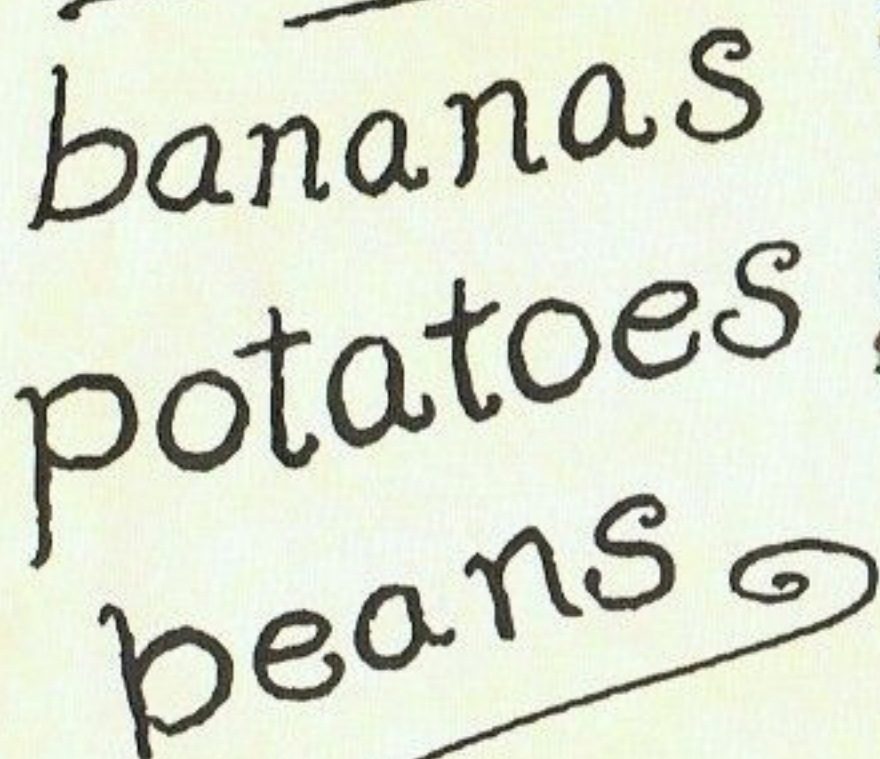 bananas
potatoes
peans